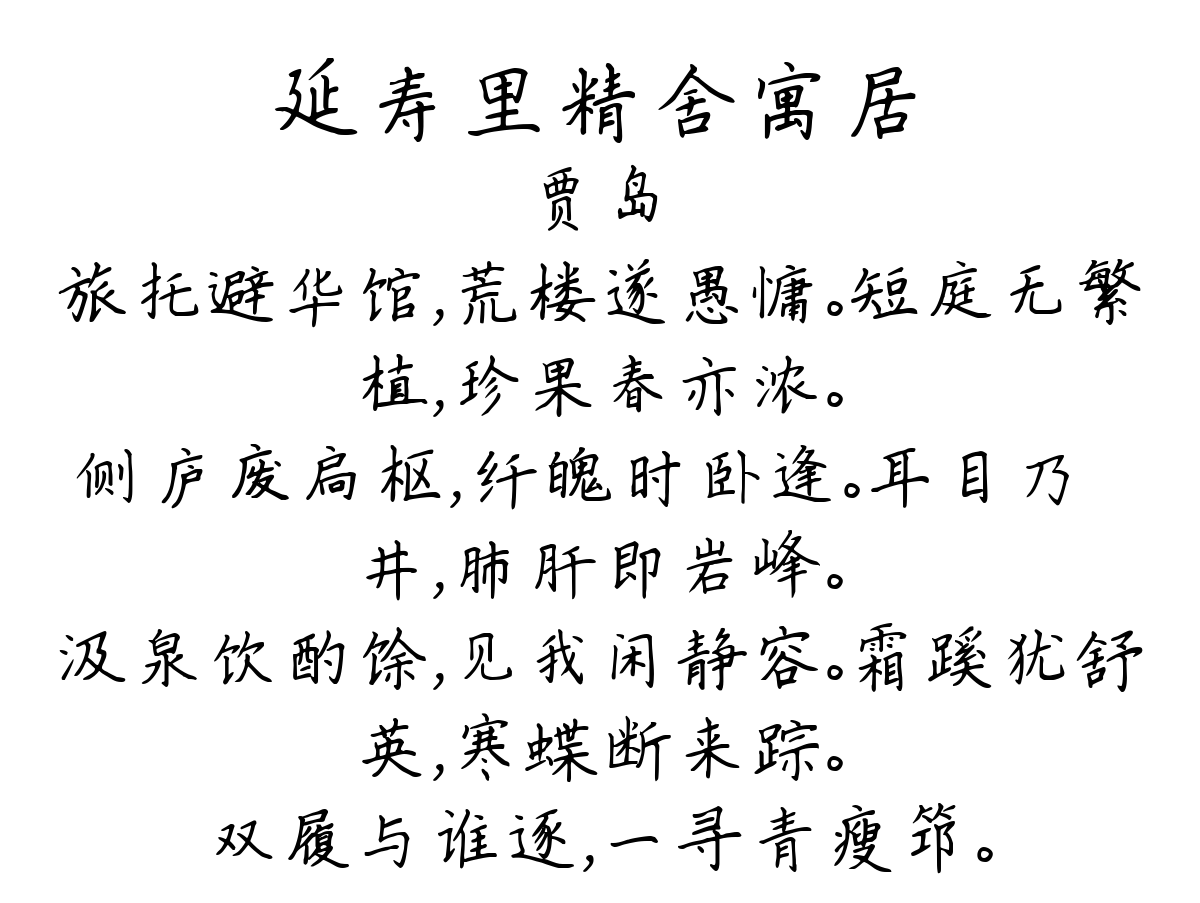 延寿里精舍寓居
贾岛
旅托避华馆,荒楼遂愚慵。短庭无繁
植,珍果春亦浓。
侧庐废扃枢,纤魄时卧逢。耳目乃
井,肺肝即岩峰。
汲泉饮酌馀,见我闲静容。霜蹊犹舒
英,寒蝶断来踪。
双履与谁逐,一寻青瘦筇。